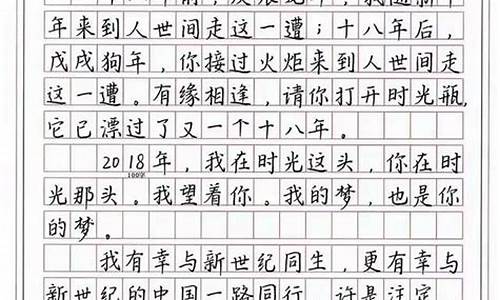 我随新千
年来到人世间走这一遭；十八年后，
戊戌狗年，你接过火炬来到人世间走
这一遭。有缘相逢，请你打开时光瓶，
它已漂过了又一个十八年。
2018年，我在时光这头，你在时
100字
光那头。我望着你。我的梦，也是你
的梦。
我有幸与新世纪同生，更有幸与
新世纪的中国一路同行 许是注定